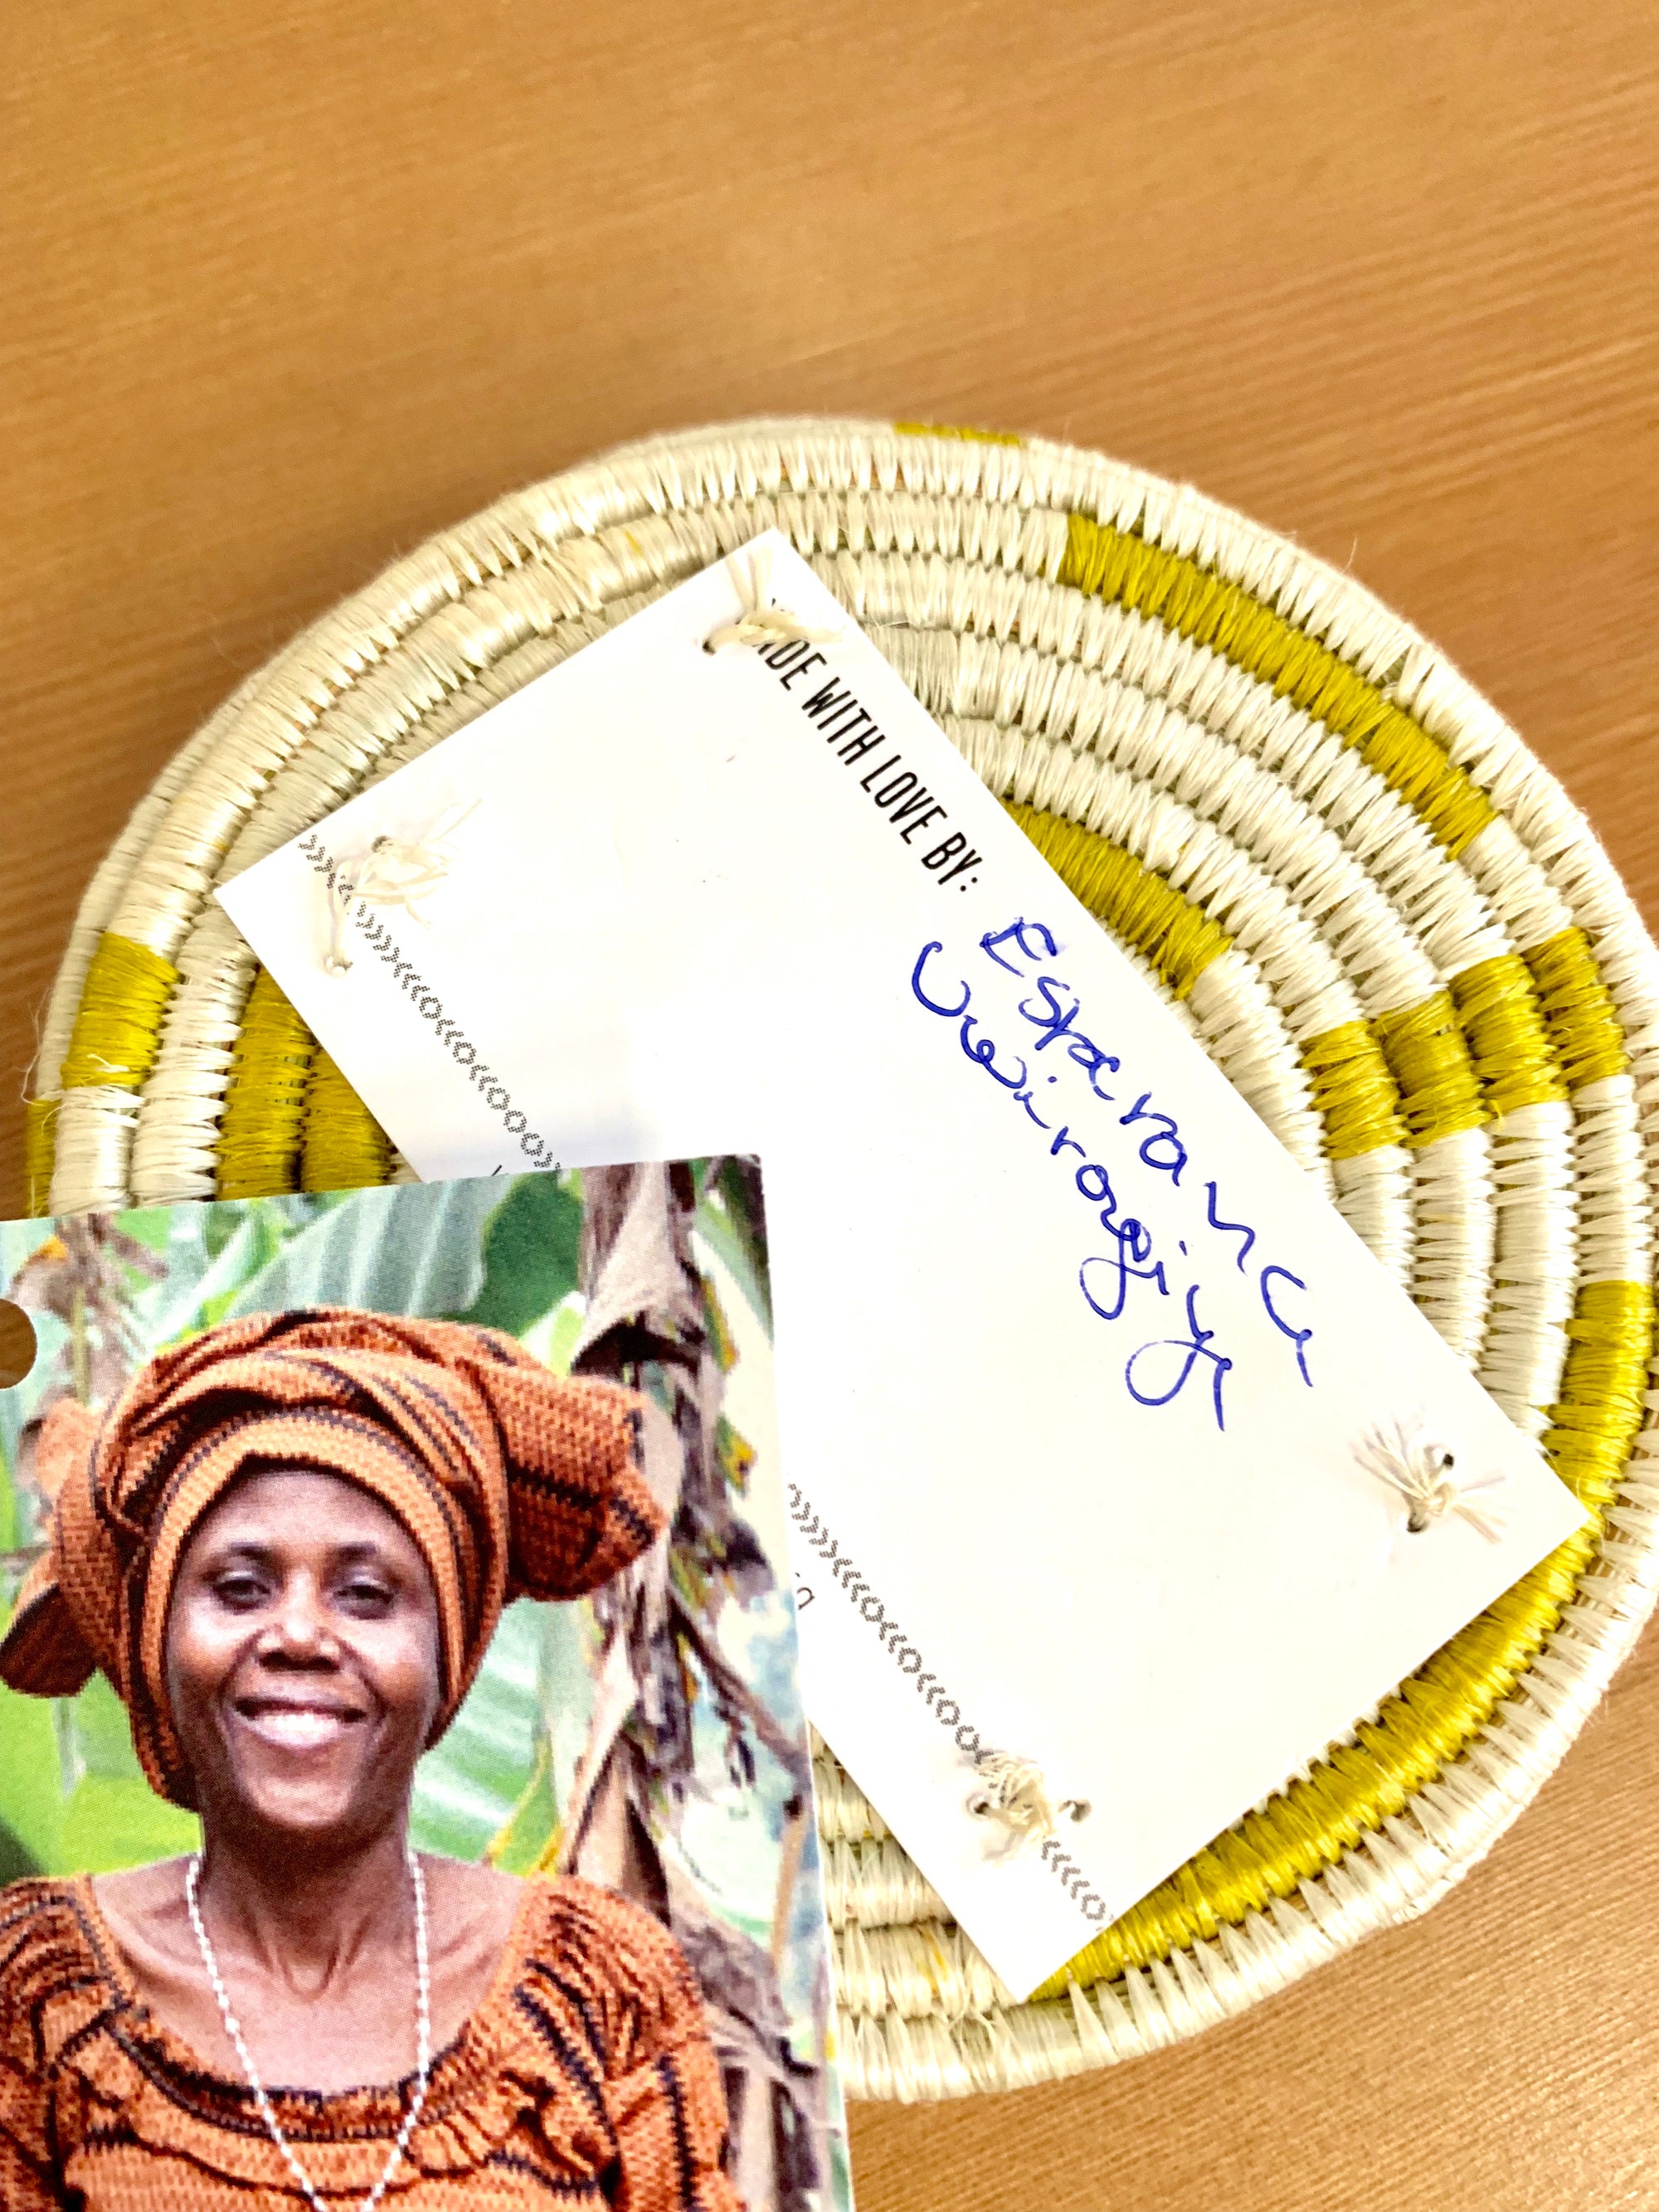 MADE WITH LOVE BY: Esperance
Uwiragiye